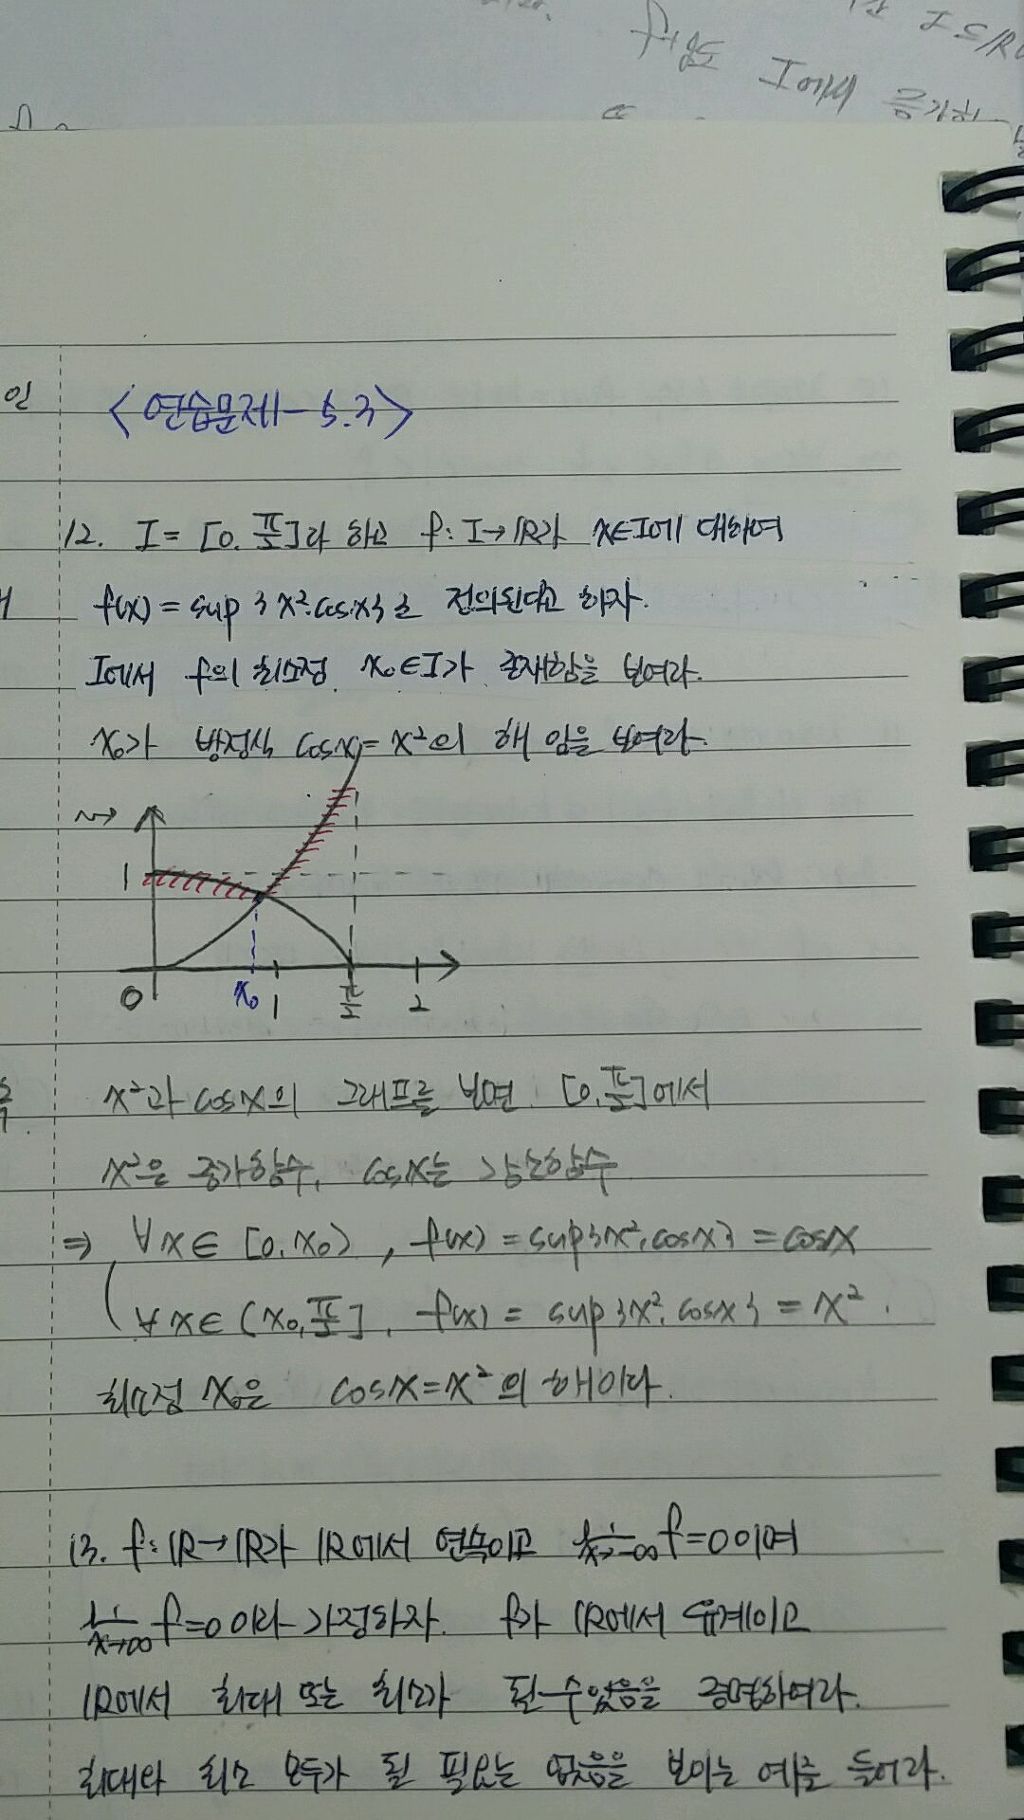 f도
I⊆R
I에서 증가
인
<연습문제-5.3>
12. I = [0, π/2]라 하고 f: I→ℝ가 x∈I에 대하여
f(x) = sup{x², cosx}로 정의된다고 하자.
I에서 f의 최소점 x₀∈I가 존재함을 보여라.
x₀가 방정식 cosx = x²의 해 임을 보여라.
1
0 x₀ 1 π/2 2
x²과 cosx의 그래프를 보면 [0, π/2]에서
x²은 증가함수, cosx는 감소함수
⇒ ∀x∈ [0, x₀), f(x) = sup{x², cosx} = cosx
∀x∈ (x₀, π/2], f(x) = sup{x², cosx} = x².
최소점 x₀은 cosx = x²의 해이다.
13. f: ℝ→ℝ가 ℝ에서 연속이고 lim x→-∞ f=0 이며
lim x→∞ f=0 이라 가정하자. f가 ℝ에서 유계이고
ℝ에서 최대 또는 최소가 될 수 있음을 증명하여라.
최대와 최소 모두가 될 필요는 없음을 보이는 예를 들어라.